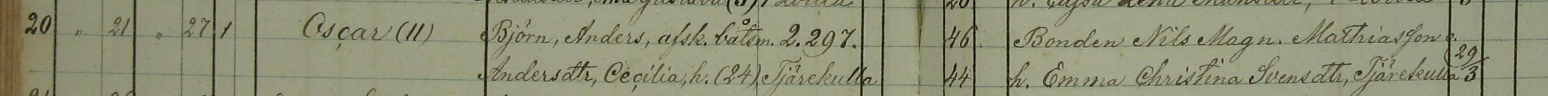 20 " 21 " 27 1 Oscar (11) Björn, Anders, afsk. båtsm. 2.297. 46. Bonden Nils Magn. Mathiasson o.
Andersdtr, Cecilia, h. (24), Tjärekulla 44 h. Emma Christina Svensdtr, Tjärekulla 29/3